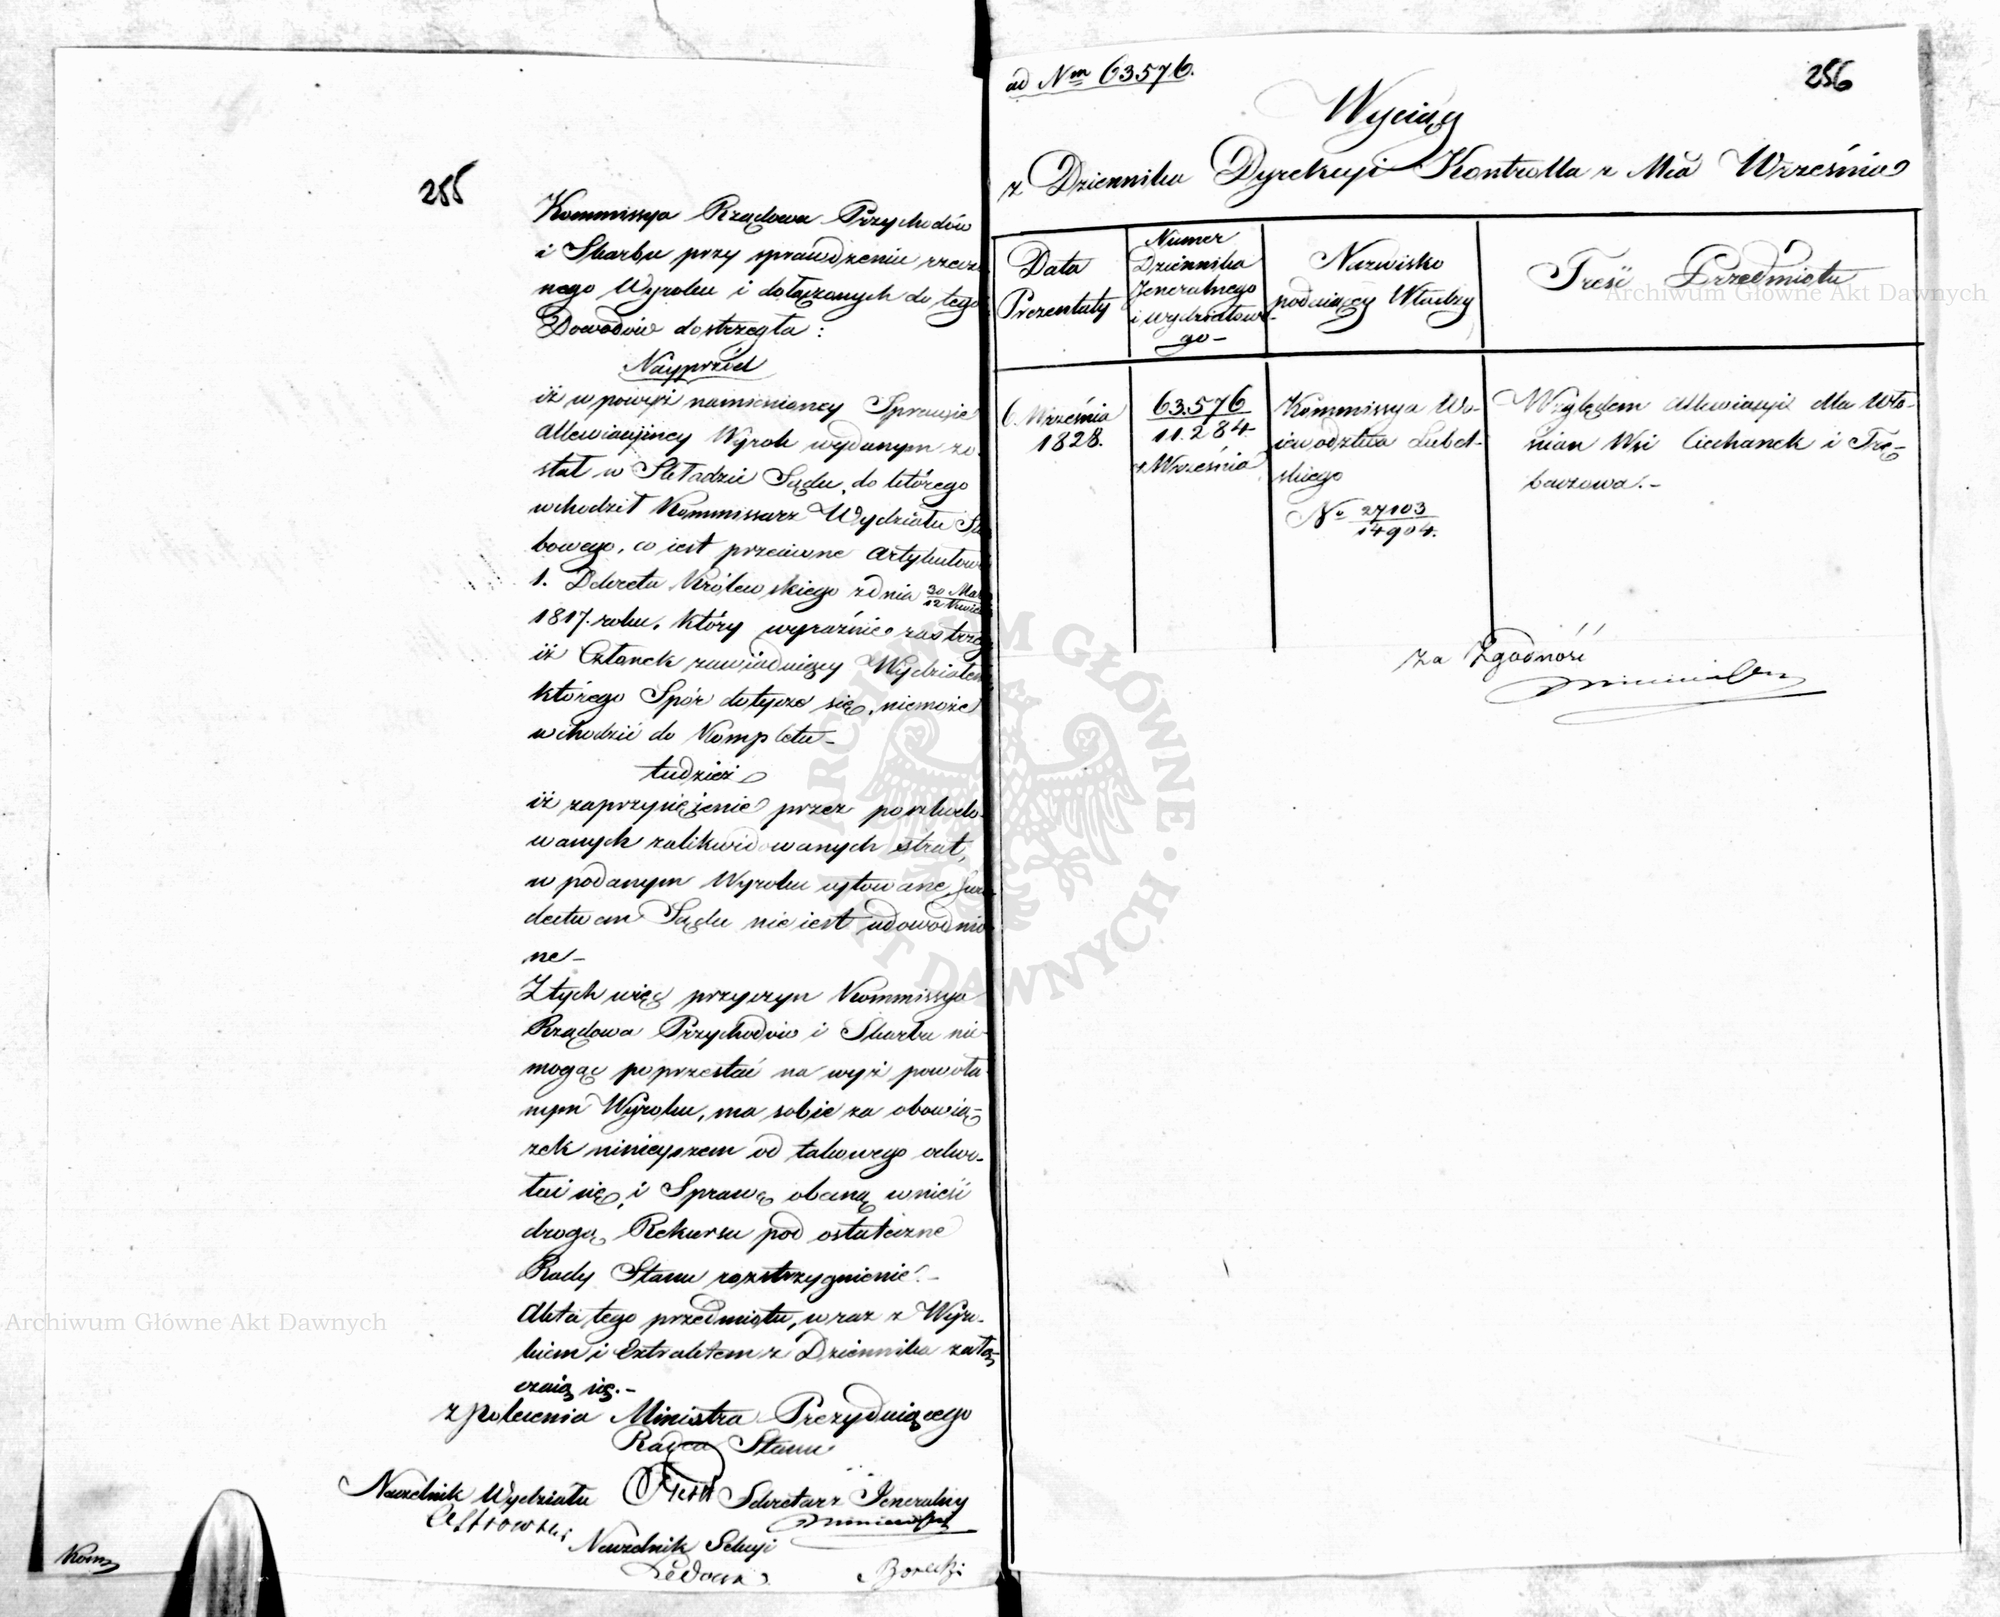 255
Kommissya Rządowa Przychodów
i Skarbu przy sprawdzeniu rzeczo
nego Wyroku i dołączonych do tego
Dowodów dostrzegła:
Nayprzód
iż w powyż namienioney Sprawie
Allewiacyiney Wyrok wydanym zo-
stał w Składzie Sądu, do którego
wchodził Kommissarz Wydziału
bowego, co iest przeciwne Artykułowi
1. Dekretu Królewskiego z dnia 30 Mar
12 Kwiet
1817. roku. który wyraźnie zastrzeg
iż Członek zawiaduiący Wydziałem
którego Spór dotycze się, niemoże
wchodzić do Kompletu_
tudzież
iż zaprzysiężenie przez poszkodo-
wanych zalikwidowanych strat,
w podanym Wyroku cytowane
dectwem Sądu nie iest udowodnio
ne_
Z tych więc przyczyn Kommissya
Rządowa Przychodów i Skarbu nie-
mogąc poprzestać na wyż powoła-
nym Wyroku, ma sobie za obowią-
zek ninieyszem od takowego odwo-
łać się, i Sprawę obecną wnieść
drogą Rekursu pod ostateczne
Rady Stanu rozstrzygnienie._
Akta tego przedmiotu, wraz z Wyro-
kiem i Extraktem z Dziennika załą-
czaią się._
z polecenia Ministra Prezyduiącego
Radca Stanu
Naczelnik Wydziału
Sekretarz Jeneralny
Naczelnik Sekcyi
ad Nrm 63.576.
256
Wyciąg
z Dziennika Dyrekcyi Kontrolla z Mca Września
Data
Prezentaty
Numer
Dziennika
Jeneralnego
i wydziałowe-
go_
Nazwisko
podaiącey Władzy
Treść Przedmiotu
6. Września
1828.
63.576
11.284.
z Września
Kommissya Wo-
iewodztwa Lubel-
skiego
No 27103
14904.
Względem Allewiacyi dla Wło-
ścian Wsi Ciechanek i Trę-
baczowa._
Za Zgodność
Archiwum Główne Akt Dawnych
Archiwum Główne Akt Dawnych
ARCHIWUM GŁÓWNE AKT DAWNYCH